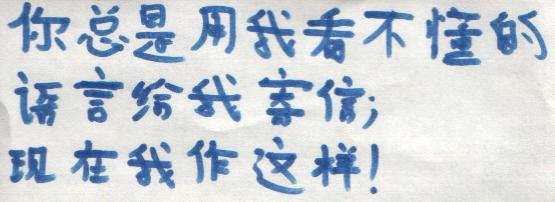 你总是用我看不懂的
语言给我寄信;
现在我作这样!